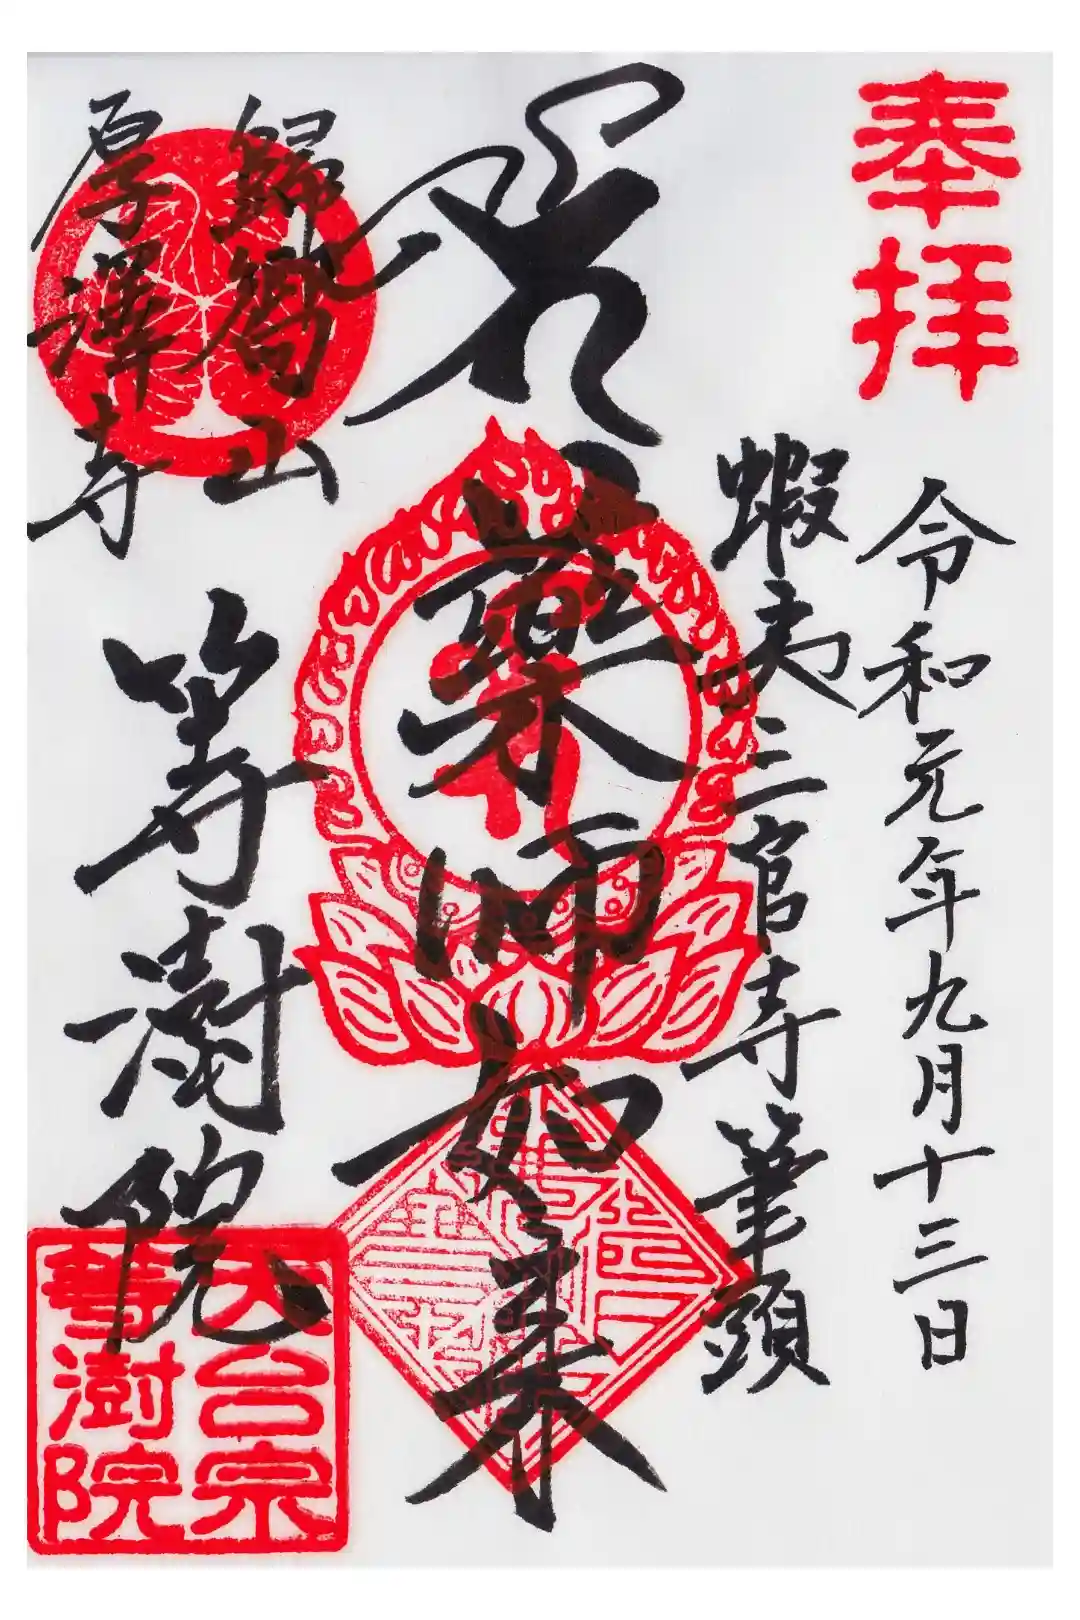 奉拝
令和元年九月十三日
蝦夷三官寺筆頭
藥師如来
歸嚮山
厚澤寺
等澍院
天台宗
等澍院